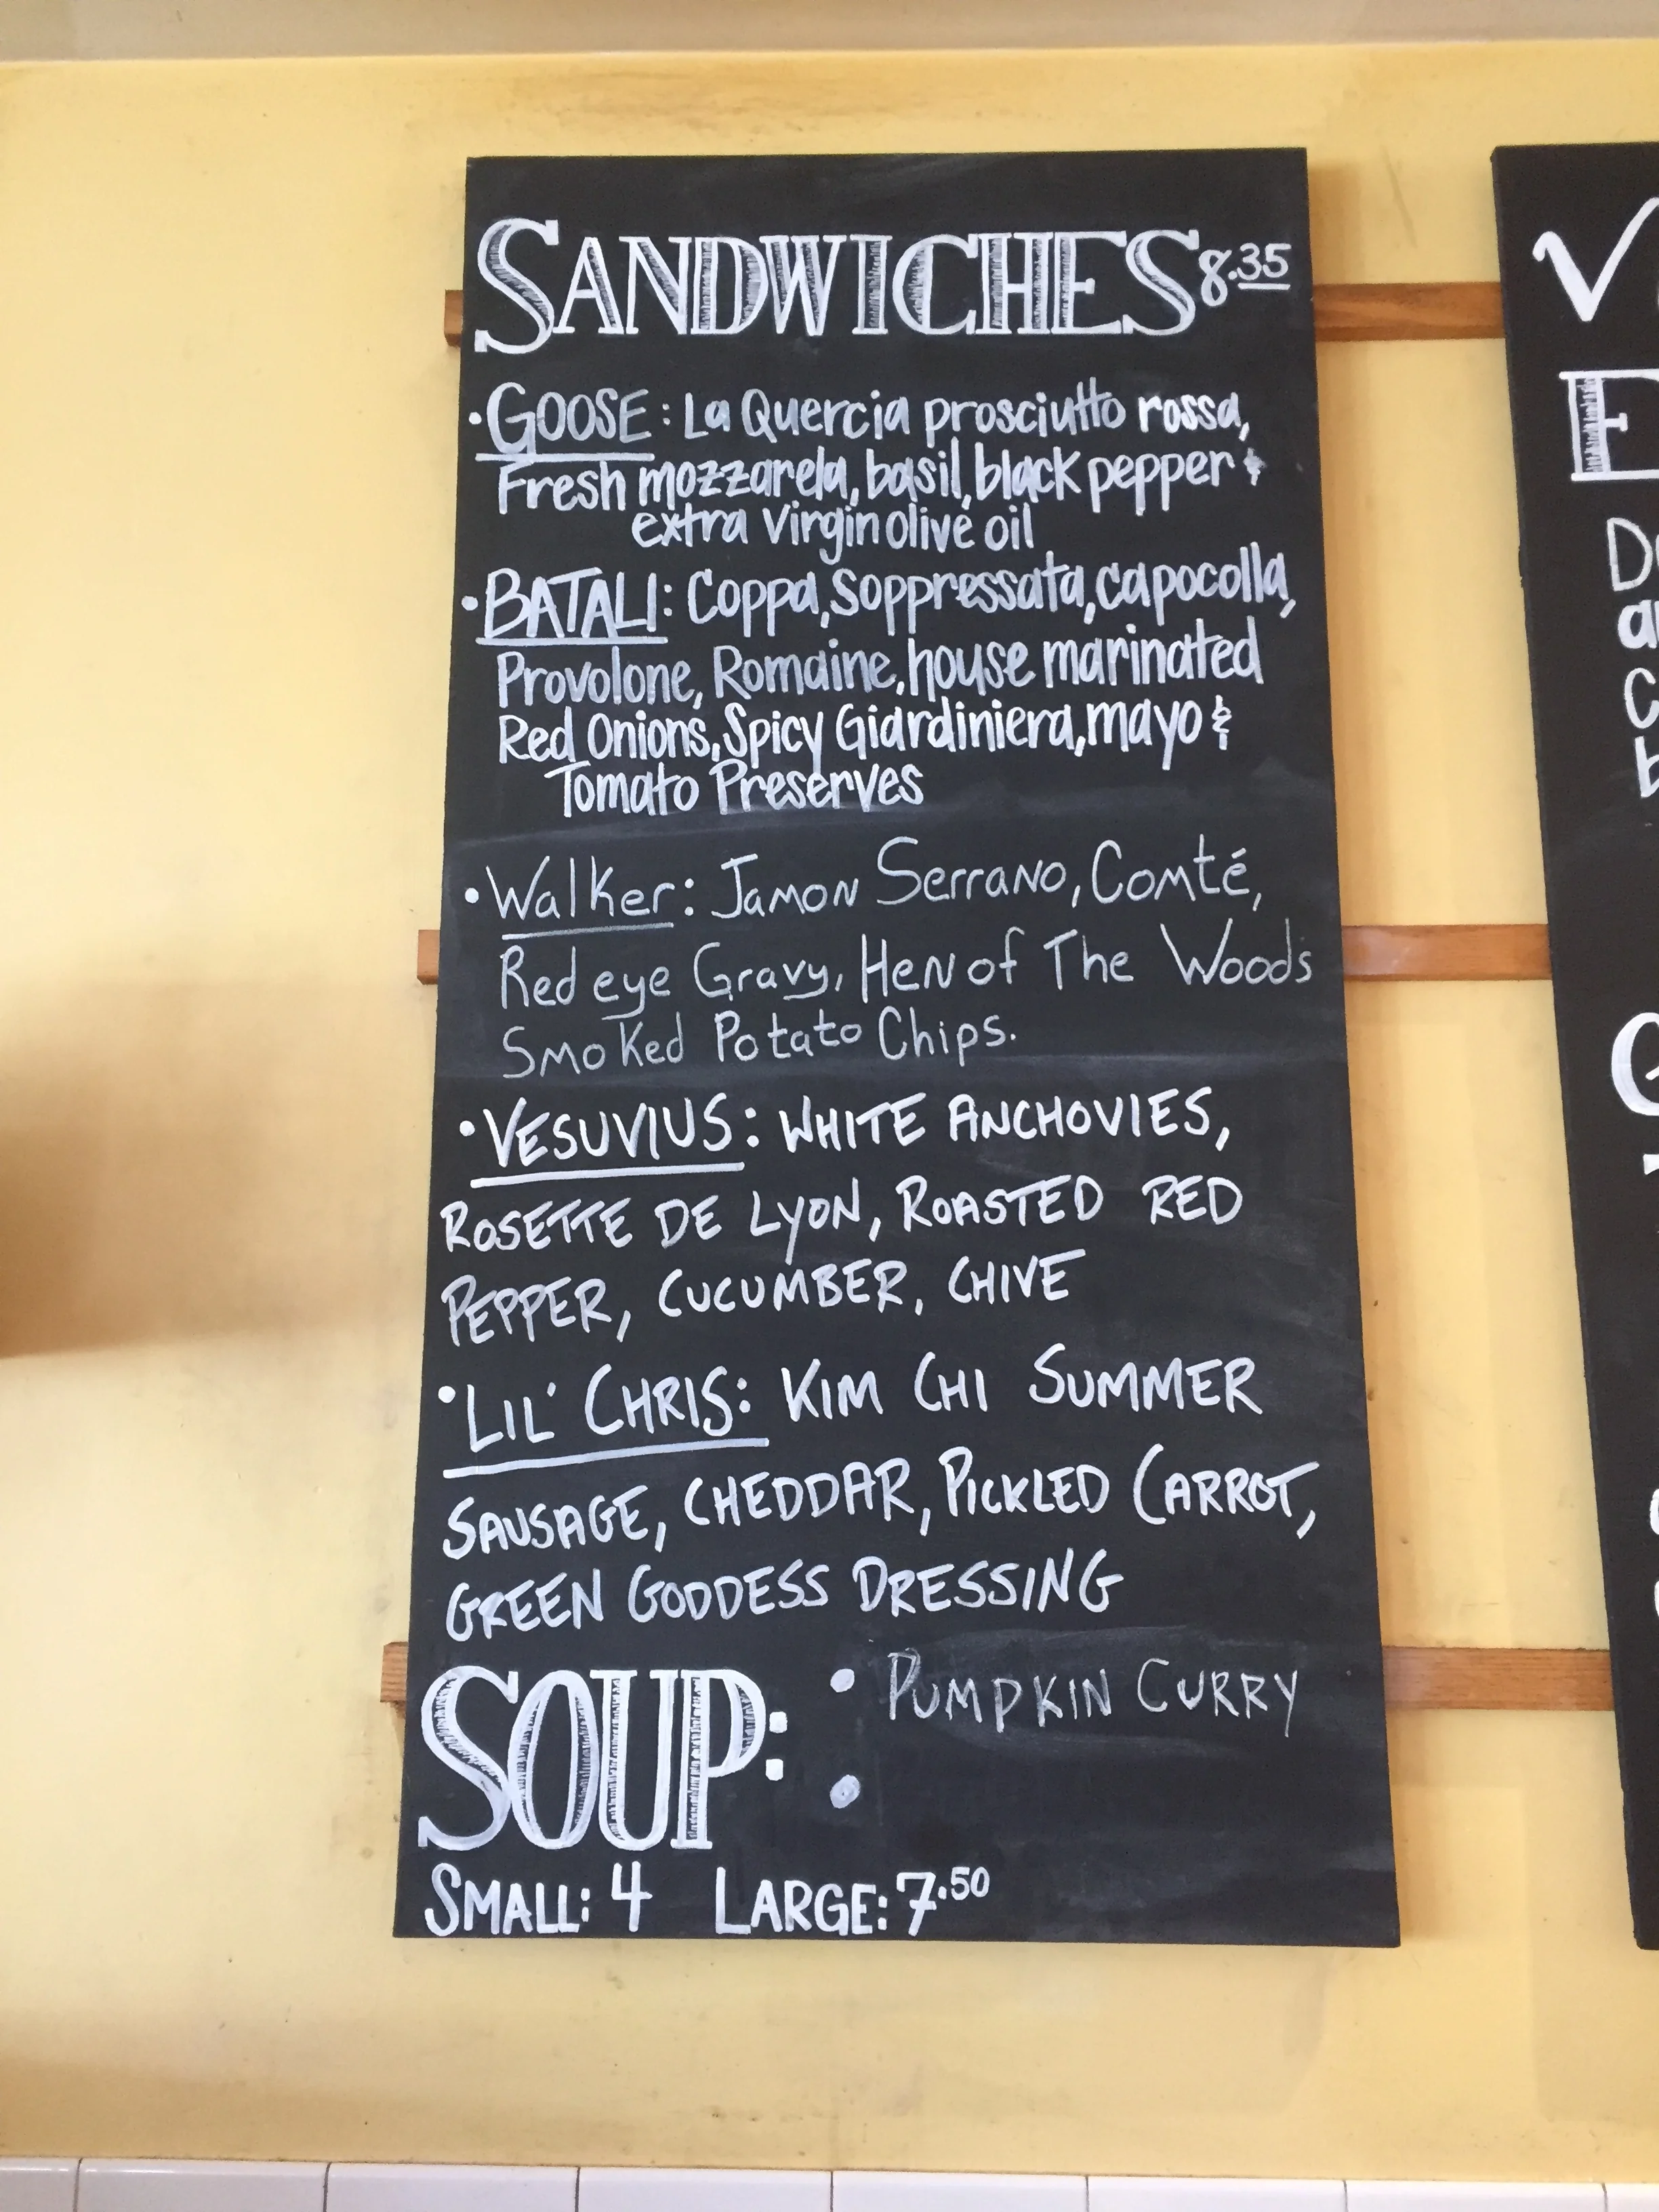 SANDWICHES 8.35
• GOOSE: La Quercia prosciutto rossa,
Fresh mozzarela, basil, black pepper &
extra virgin olive oil
• BATALI: Coppa, Soppressata, capocolla,
Provolone, Romaine, house marinated
Red Onions, Spicy Giardiniera, mayo &
Tomato Preserves
• Walker: Jamon Serrano, Comté,
Red eye Gravy, Hen of The Woods
Smoked Potato Chips.
• VESUVIUS: WHITE ANCHOVIES,
ROSETTE DE LYON, ROASTED RED
PEPPER, CUCUMBER, CHIVE
• LIL' CHRIS: KIM CHI SUMMER
SAUSAGE, CHEDDAR, PICKLED CARROT,
GREEN GODDESS DRESSING
SOUP: • PUMPKIN CURRY
•
SMALL: 4 LARGE: 7.50